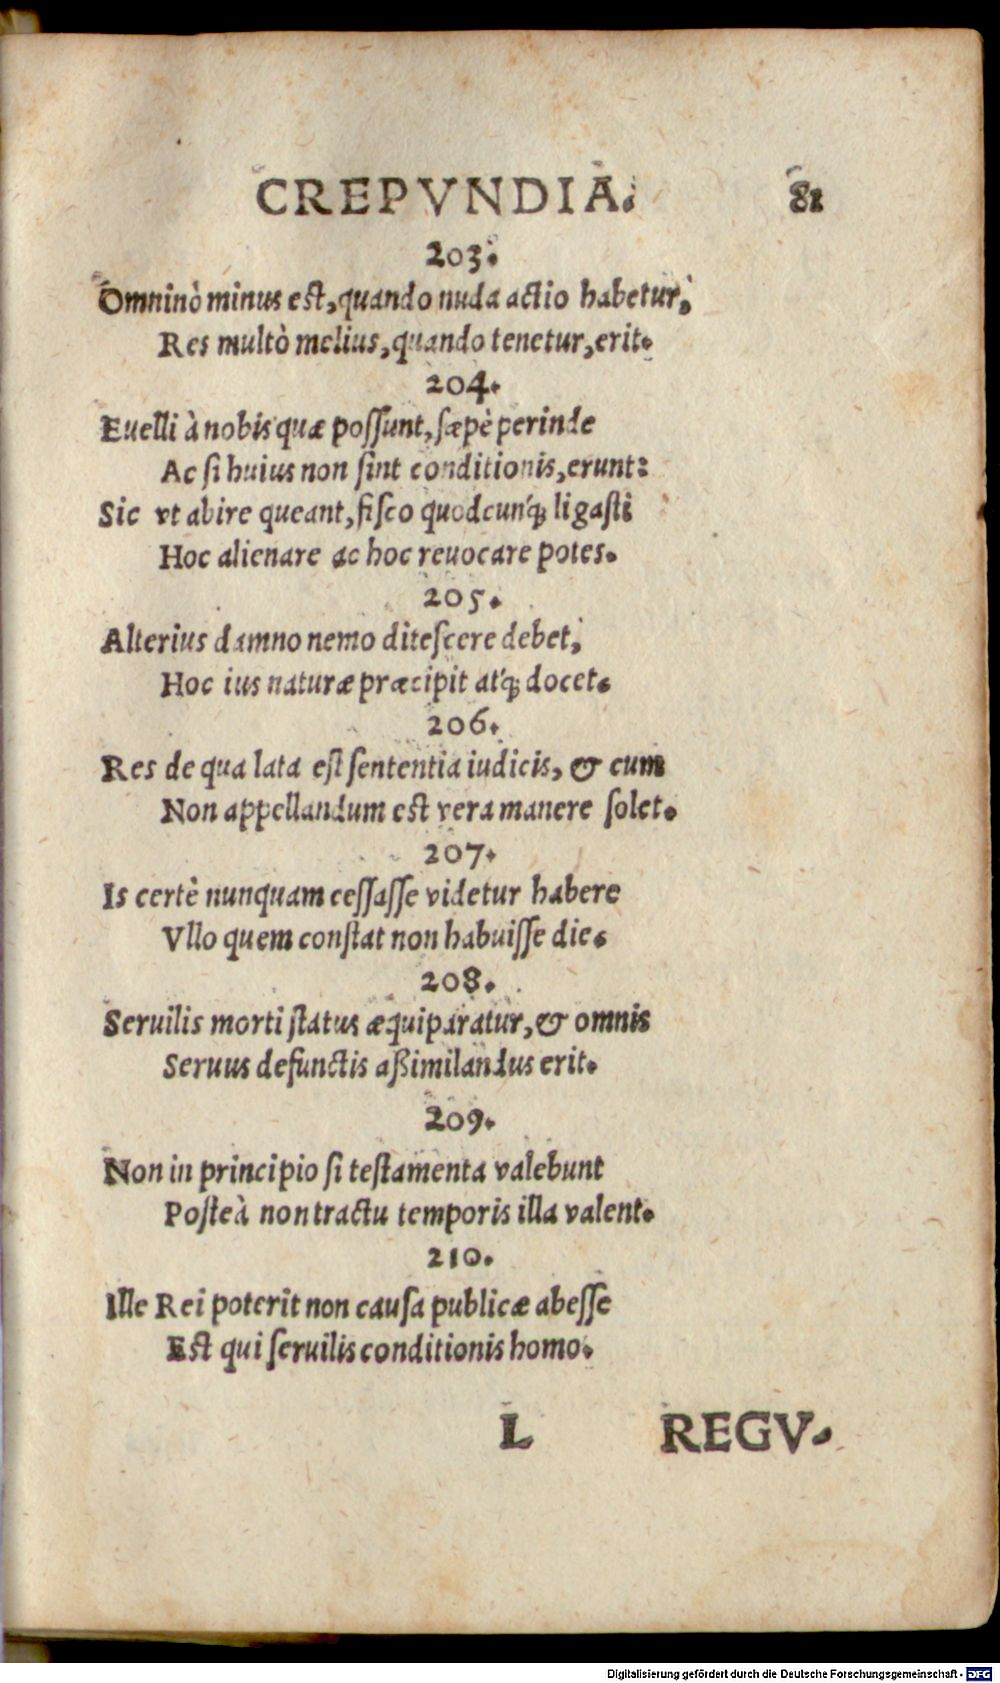 CREPVNDIA. 81
203.
Omninò minus est, quando nuda actio habetur,
Res multò melius, quando tenetur, erit.
204.
Euelli à nobis quæ possunt, sæpè perinde
Ac si huius non sint conditionis, erunt:
Sic vt abire queant, fisco quodcunq́; ligasti
Hoc alienare ac hoc reuocare potes.
205.
Alterius damno nemo ditescere debet,
Hoc ius naturæ præcipit atq́; docet.
206.
Res de qua lata est sententia iudicis, & cum
Non appellandum est vera manere solet.
207.
Is certè nunquam cessasse videtur habere
Vllo quem constat non habuisse die.
208.
Seruilis morti status æquiparatur, & omnis
Seruus defunctis aßimilandus erit.
209.
Non in principio si testamenta valebunt
Posteà non tractu temporis illa valent.
210.
Ille Rei poterit non causa publicæ abesse
Est qui seruilis conditionis homo.
L REGV-
Digitalisierung gefördert durch die Deutsche Forschungsgemeinschaft - DFG